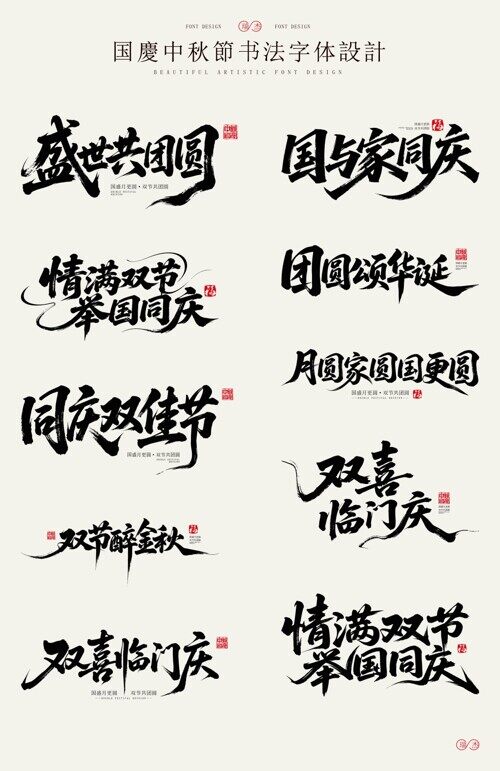 FONT DESIGN 瑞杰 FONT DESIGN
国慶中秋節书法字体設計
BEAUTIFUL ARTISTIC FONT DESIGN
盛世共团圆
国盛月更圆·双节共团圆
国与家同庆
福
情满双节
举国同庆
福
团圆颂华诞
同庆双佳节
国盛月更圆·双节共团圆
月圆家圆国更圆
国盛月更圆·双节共团圆
福
双节醉金秋
福
双喜
临门庆
双喜临门庆
国盛月更圆 双节共团圆
情满双节
举国同庆
福
瑞杰